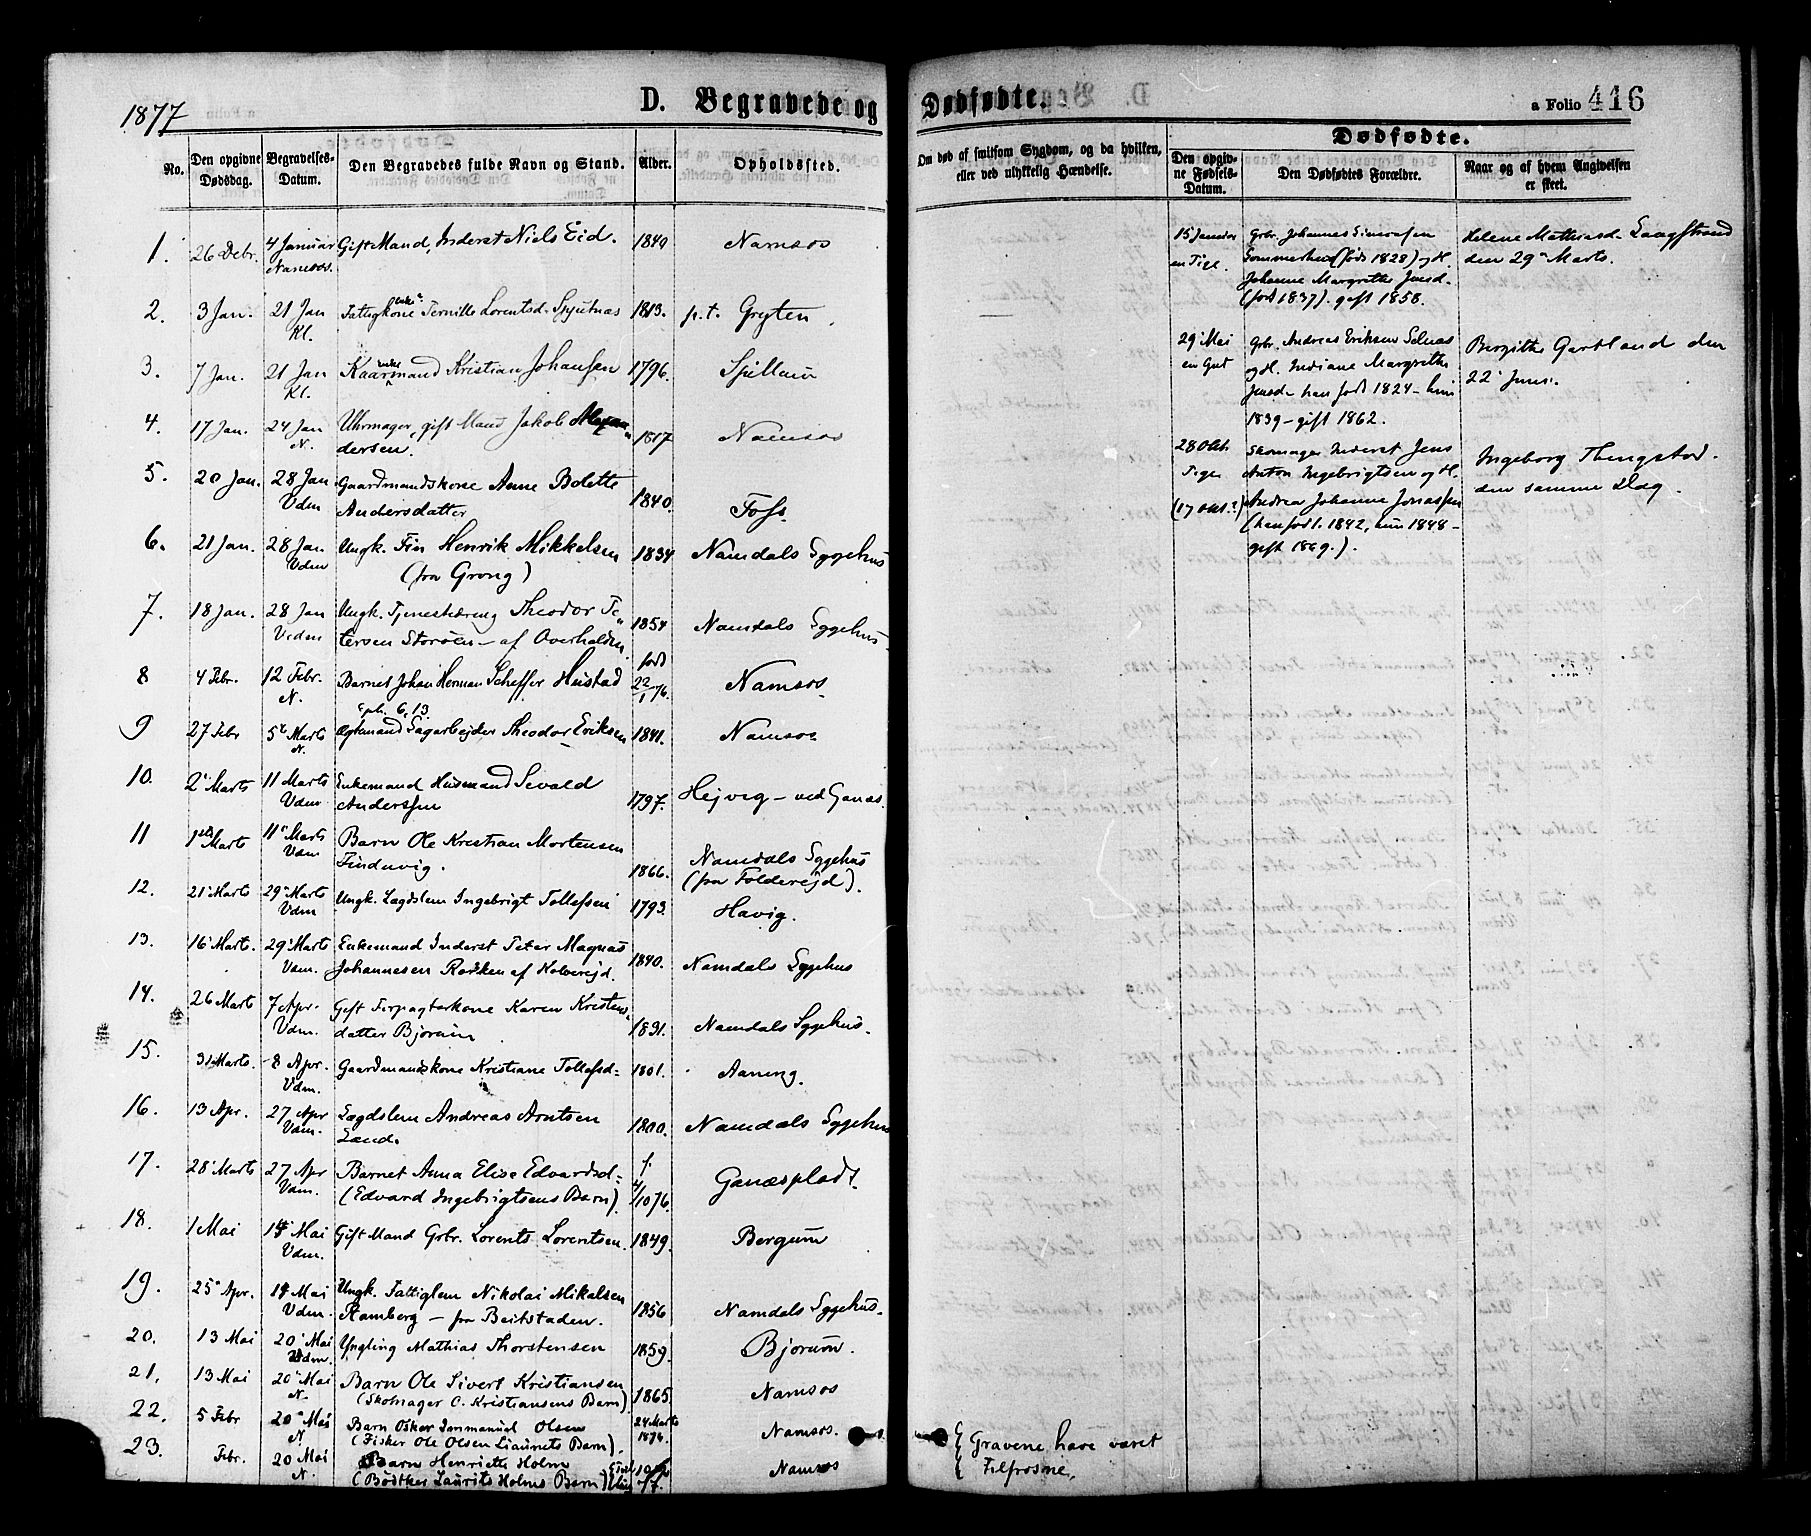 1877
D. Begravede og Dødfødte.
a Folio 416
No.
Den opgivne Dødsdag.
Begravelses-Datum.
Den Begravedes fulde Navn og Stand.
Alder.
Opholdssted.
Om død af smitsom Sygdom, og da hvilken, eller ved ulykkelig Hændelse.
Dødfødte.
Den opgivne Fødsels-Datum.
Den Dødfødtes Forældre.
Naar og af hvem Angivelsen er skeet.
1. 26 Debr. 4 Januar Gift Mand, Inderst Niels Eid. 1840 Namsos
Namsos.
2. 3 Jan. 21 Jan Fattigkone Pernille Lorentsd. Spjutnæs 1813. p.t. Gryten
Kl.
3. 7 Jan. 21 Jan Kaarmand Kristian Johansen 1796. Spillum
Kl.
4. 17 Jan. 24 Jan Uhrmager, gift Mand Jakob Alexan 1817 Namsos
N. dersen.
5. 20 Jan. 28 Jan Gaardmandskone Anne Bolette 1840. Foss.
Vdm Andersdatter
6. 21 Jan. 28 Jan Ungk. Fin Henrik Mikkelsen 1834 Namdals Sygehus
Vdm (fra Grong)
7. 18 Jan. 28 Jan Ungk. Tjenestedreng Theodor Pe 1854 Namdals Sygehus
Vdm tersen Storöen - af Overhalden
8 4 Febr. 12 Febr. Barnet Johan Herman Scheffer Hustad født 22/1 76. Namsos
N. Eph. 6,13.
9 27 Febr 5 Marts Ægtemand Sagarbejder Theodor Eriksen 1841. Namsos
N.
10. 2 Marts 11 Marts Enkemand Husmand Sevald 1797. Hejvig - ved Ganæs.
Vdm Anderssen
11 1ste Marts 11 Marts Barn Ole Kristian Mortensen 1866. Namdals Sygehus
Vdm Finduvig. (fra Foldereid).
12. 21 Marts 29 Marts Ungk. Lægdslem Ingebrigt Tollefsen 1793. Havig.
Vdm
13. 16 Marts. 29 Marts Enkemand Inderst Peter Magnus 1840. Namdals Sygehus
Vdm. Johannesen Rodken af Kolvereid.
14. 26 Marts 7 Apr. Gift Forpagterkone Karen Kristens 1831. Namdals Sygehus.
Vdm. datter Bjørum
15. 31 Marts 8 Apr. Gaardmandskone Kristiane Tollefsd= 1801. Aaning.
Vdm.
16. 13 Apr. 27 Apr Lægdslem Andreas Arntsen 1800. Namdals Sygehus
Vdm. Land.
17. 28 Marts 27 Apr Barnet Anna Elise Edvardsd= f. 4/10 76. Ganæsplads.
Vdm. (Edvard Ingebrigtsens Barn)
18. 1 Mai 14 Mai Gift Mand Grbr. Lorents Lorentsen. 1849. Bergum
Vdm.
19. 25 Apr. 14 Mai Ungk. Fattiglem Nikolai Mikalsen 1856 Namdals Sygehus.
Vdm. Ramberg - fra Beitstaden.
20. 13 Mai 20 Mai Yngling Mathias Thorstensen 1859. Bjørum.
Vdm.
21. 13 Mai 20 Mai Barn Ole Sivert Kristiansen 1865. Namsos
N. (Skomager C. Kristiansens Barn)
22. 5 Febr 20 Mai Barn Oskar Immanuel Olsen 24 Marts 1874. Namsos.
N. (Fisker Ole Olsen Liaunets Barn).
23. Febr. 20 Mai Barn Henriette Holm Namsos
N. (Bødtker Laurits Holms Barn)
Gravene have været
Tilfrosne.
15 Januar
en Pige.
Grbr. Johannes Simonsen
Sommerhus (født 1828) og H.
Johanne Margrethe Jensd.
(født 1837) - gift 1858.
Helene Mathiasd. Laagstrand
den 29 Marts.
29 Mai
en Gut
Grbr. Andreas Eriksen Selnæs
og H. Indiane Margrethe
Jensd - han født 1824 - hun
1839 - gift 1862.
Bergitte Gartland den
22 Juni.
28 Okt
Pige
(17 Okt.?)
Skomager Inderst Jens
Anton Ingebrigtsen og H.
Andrea Johanne Jonassen
(han født 1842, hun 1848 -
gift 1869.).
Ingeborg Thengstad.
den samme Dag.